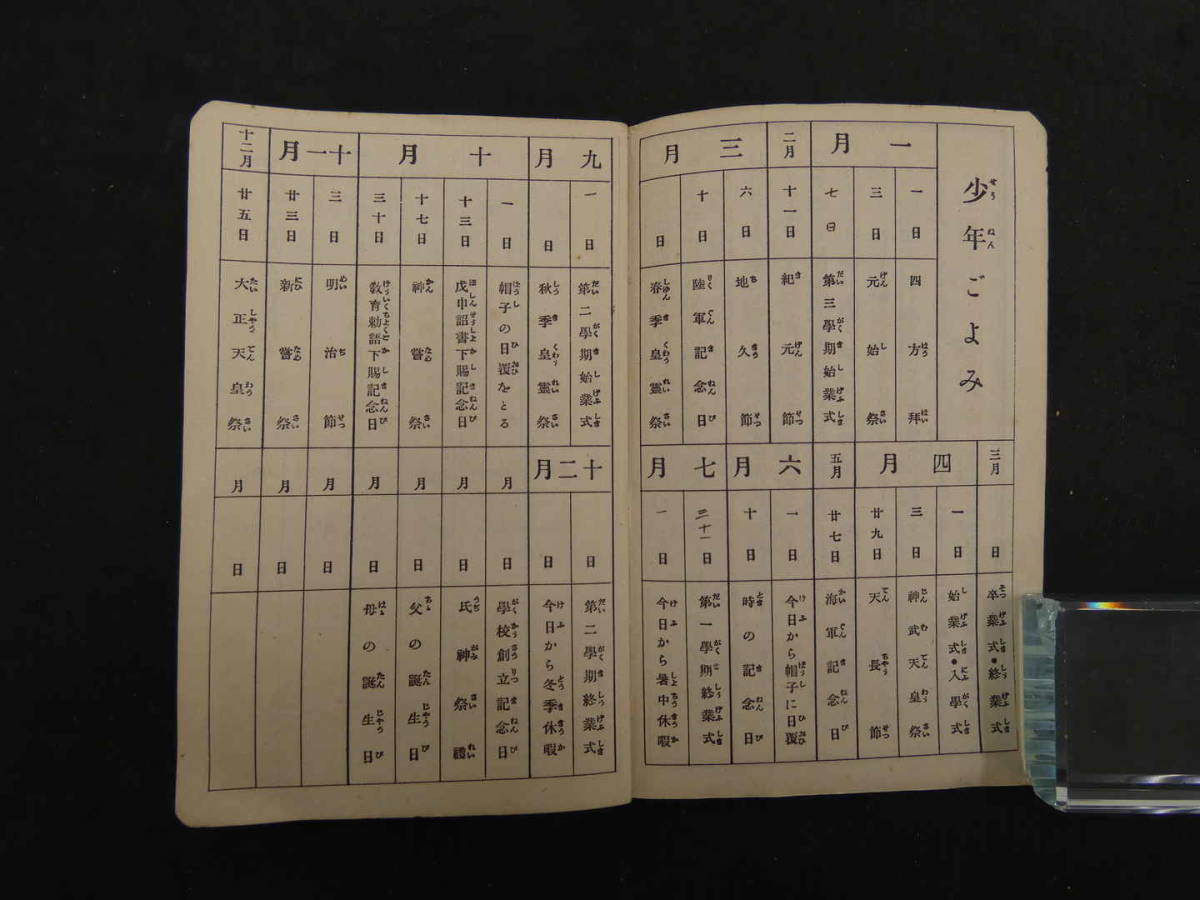 少年ごよみ
一月
一日 四方拜
三日 元始祭
七日 第三學期始業式
二月
十一日 紀元節
三月
六日 地久節
十日 陸軍記念日
日 春季皇靈祭
三月
日 卒業式・終業式
四月
一日 始業式・入學式
三日 神武天皇祭
廿九日 天長節
五月
廿七日 海軍記念日
六月
一日 今日から帽子に日覆
十日 時の記念日
七月
三十一日 第一學期終業式
一日 今日から暑中休暇
九月
一日 第二學期始業式
日 秋季皇靈祭
十月
一日 帽子の日覆をとる
十三日 戊申詔書下賜記念日
十七日 神嘗祭
三十日 敎育勅語下賜記念日
十一月
三日 明治節
廿三日 新嘗祭
十二月
廿五日 大正天皇祭
十二月
日 第二學期終業式
日 今日から冬季休暇
月 日 學校創立記念日
月 日 氏神祭禮
月 日 父の誕生日
月 日 母の誕生日
月 日
月 日
月 日